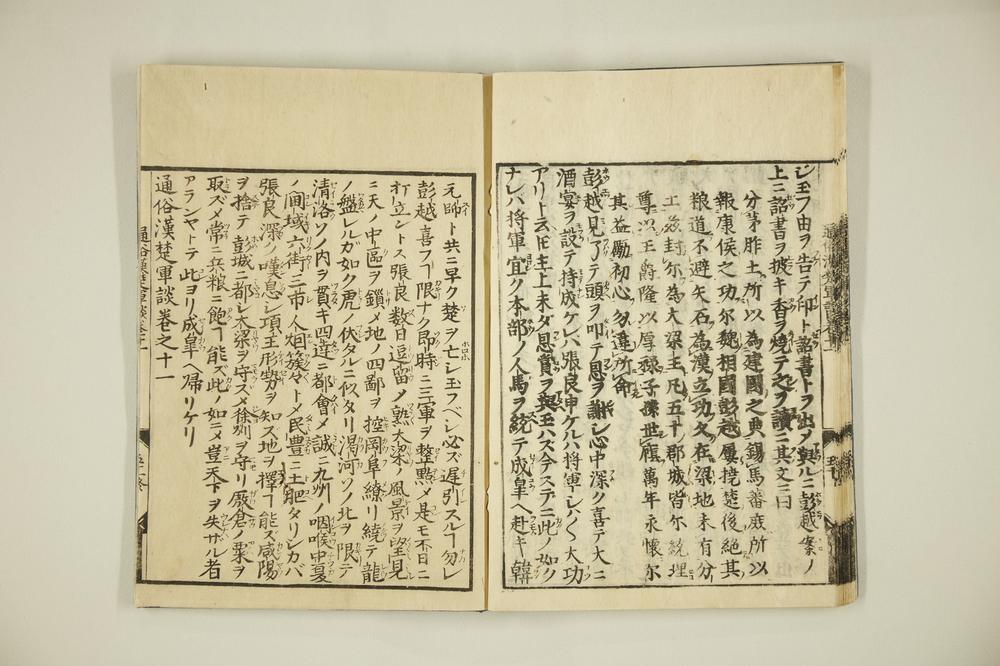 シ玉フ由ヲ告テ印ト詔書トヲ出シ與ルニ彭越案ノ
上ニ詔書ヲ披キ香ヲ燒テ之ヲ讀ニ其文ニ曰
分茅胙土所以為建國之典錫馬蕃庶所以
報康侯之功尔魏相國彭越屢撓楚後絕其
粮道不避矢石為漢立功久在梁地未有分
土茲封尔為大梁王凡五十郡城皆尔統理
尊以王爵隆以厚祿子孫世襲萬年永懷尔
其益勵初心勿違所命
彭越見了テ頭ヲ叩テ恩ヲ謝シ心中深ク喜テ大ニ
酒宴ヲ設テ持成ケレバ張良申ケルハ將軍シバ〱大功
アリト云𪜈主上未ダ恩賞ヲ與玉ハズ今ステニ此ノ如ク
ナレバ將軍宜ク本部ノ人馬ヲ統テ成皐ヘ赴キ韓
元帥ト共ニ早ク楚ヲ亡シ玉フベシ必ズ遲引スルヿ勿レ
彭越喜フヿ限ナク即時ニ三軍ヲ整點メ是モ不日ニ
打立ントス張良数日逗留メ熟大梁ノ風景ヲ望見
ニ天ノ中區ヲ鎖メ地ノ四鄙ヲ控岡阜繚リ繞テ龍
ノ盤レルガ如ク虎ノ伏タルニ似タリ濁河ソノ北ヲ限テ
清洛ソノ内ヲ貫キ四達ニ都會メ誠ニ九州ノ咽喉中夏
ノ閫域六街三市人烟簇々トメ民豊ニ土肥タリシカバ
張良深ク嘆息シ項王形勢ヲ知ズ地ヲ擇ヿ能ズ咸陽
ヲ捨テ彭城ニ都シ大梁ヲ守ズメ徐州ヲ守リ厫倉ノ粟ヲ
取ズメ常ニ兵粮ニ飽ヿ能ズ此ノ如ニメ豈天下ヲ失ザル者
アランヤトテ此ヨリ成皐ヘ帰リケリ
通俗漢楚軍談巻之十一